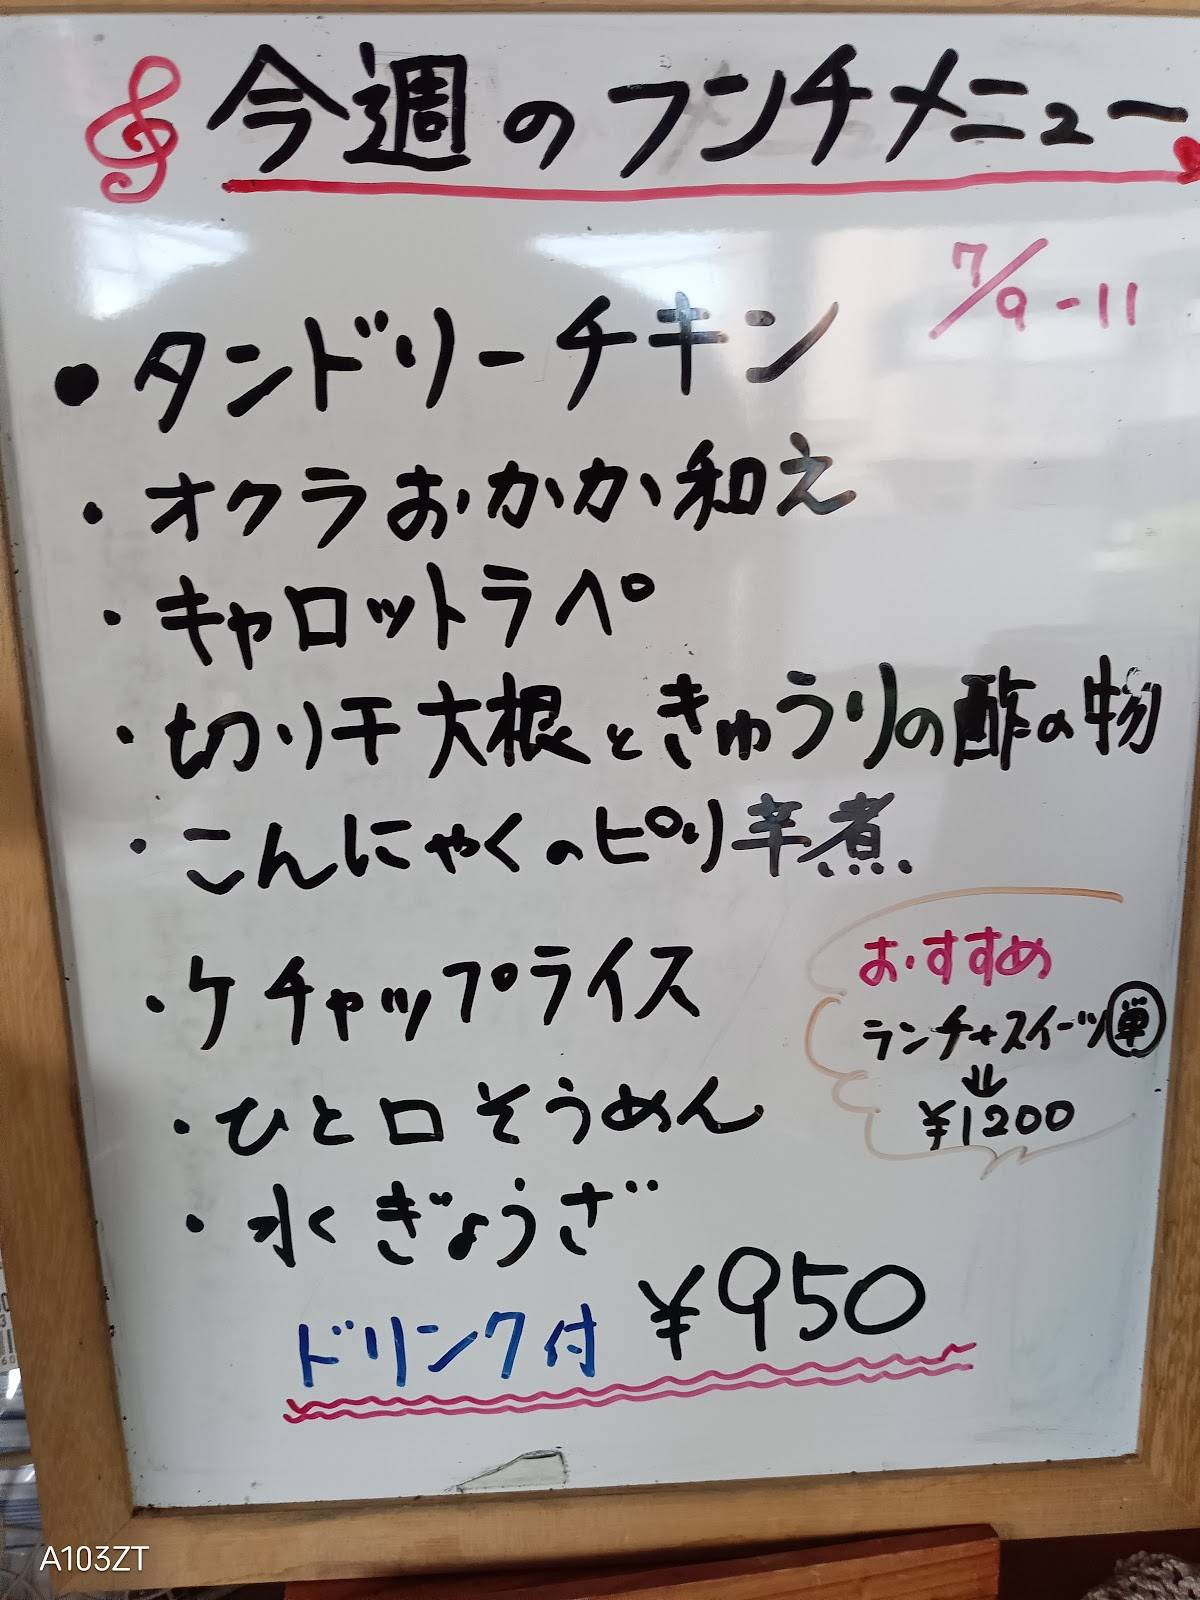 今週のランチメニュー
7/9-11
・タンドリーチキン
・オクラおかか和え
・キャロットラペ
・切り干大根ときゅうりの酢の物
・こんにゃくのピリ辛煮
・ケチャップライス
・ひと口そうめん
・水ぎょうざ
おすすめ
ランチ+スイーツ単
↓
¥1200
ドリンク付 ¥950
A103ZT